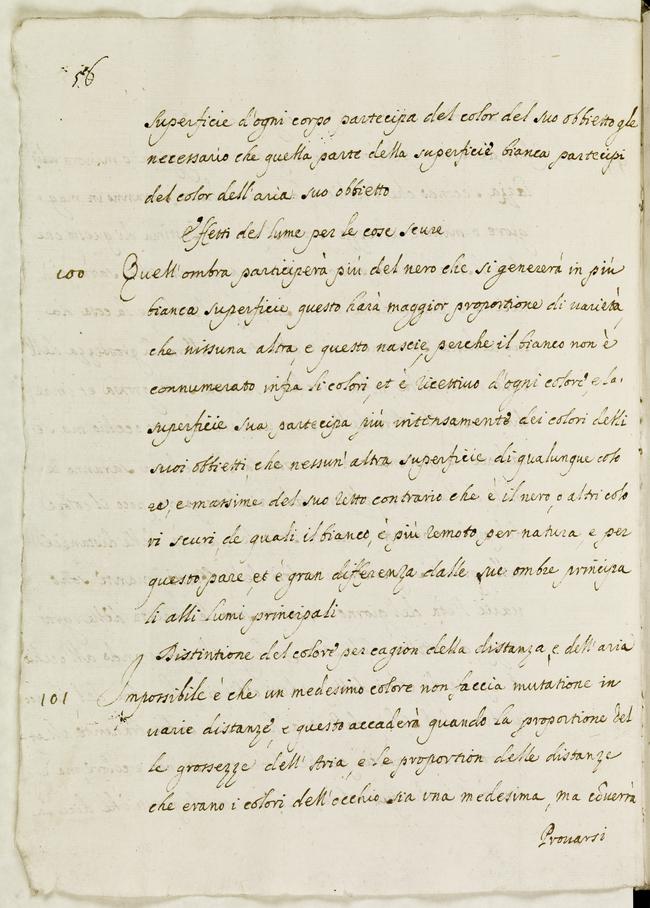 56
superficie d'ogni corpo partecipa del color del suo obbietto gl'e
necessario che quella parte della superficie bianca partecipi
del color dell'aria suo obbietto
Effetti del lume per le cose scure
100 Quell'ombra participerà più del nero che si genererà in più
bianca superficie questo harà maggior proportione di varietà
che nissuna altra, e questo nascie, perche il bianco non è
connumerato infra li colori, et è ricettivo d'ogni colore, e la
superficie sua partecipa più intensamente dei colori delli
suoi obbietti che nessun'altra superficie di qualunque colo
re, e massime del suo retto contrario che è il nero, o altri colo
ri scuri, de quali il bianco, è più remoto per natura, e per
questo pare, et è gran differenza dalle sue ombre principa
li alli lumi principali
Distintione del colore per cagion della distanza, e dell'aria
101 Impossibile è che un medesimo colore non faccia mutatione in
varie distanze, e questo accaderà quando la proportione del
le grossezze dell'Aria, e le proportion delle distanze
che erano i colori dell'occhio sia una medesima, ma
Provarsi